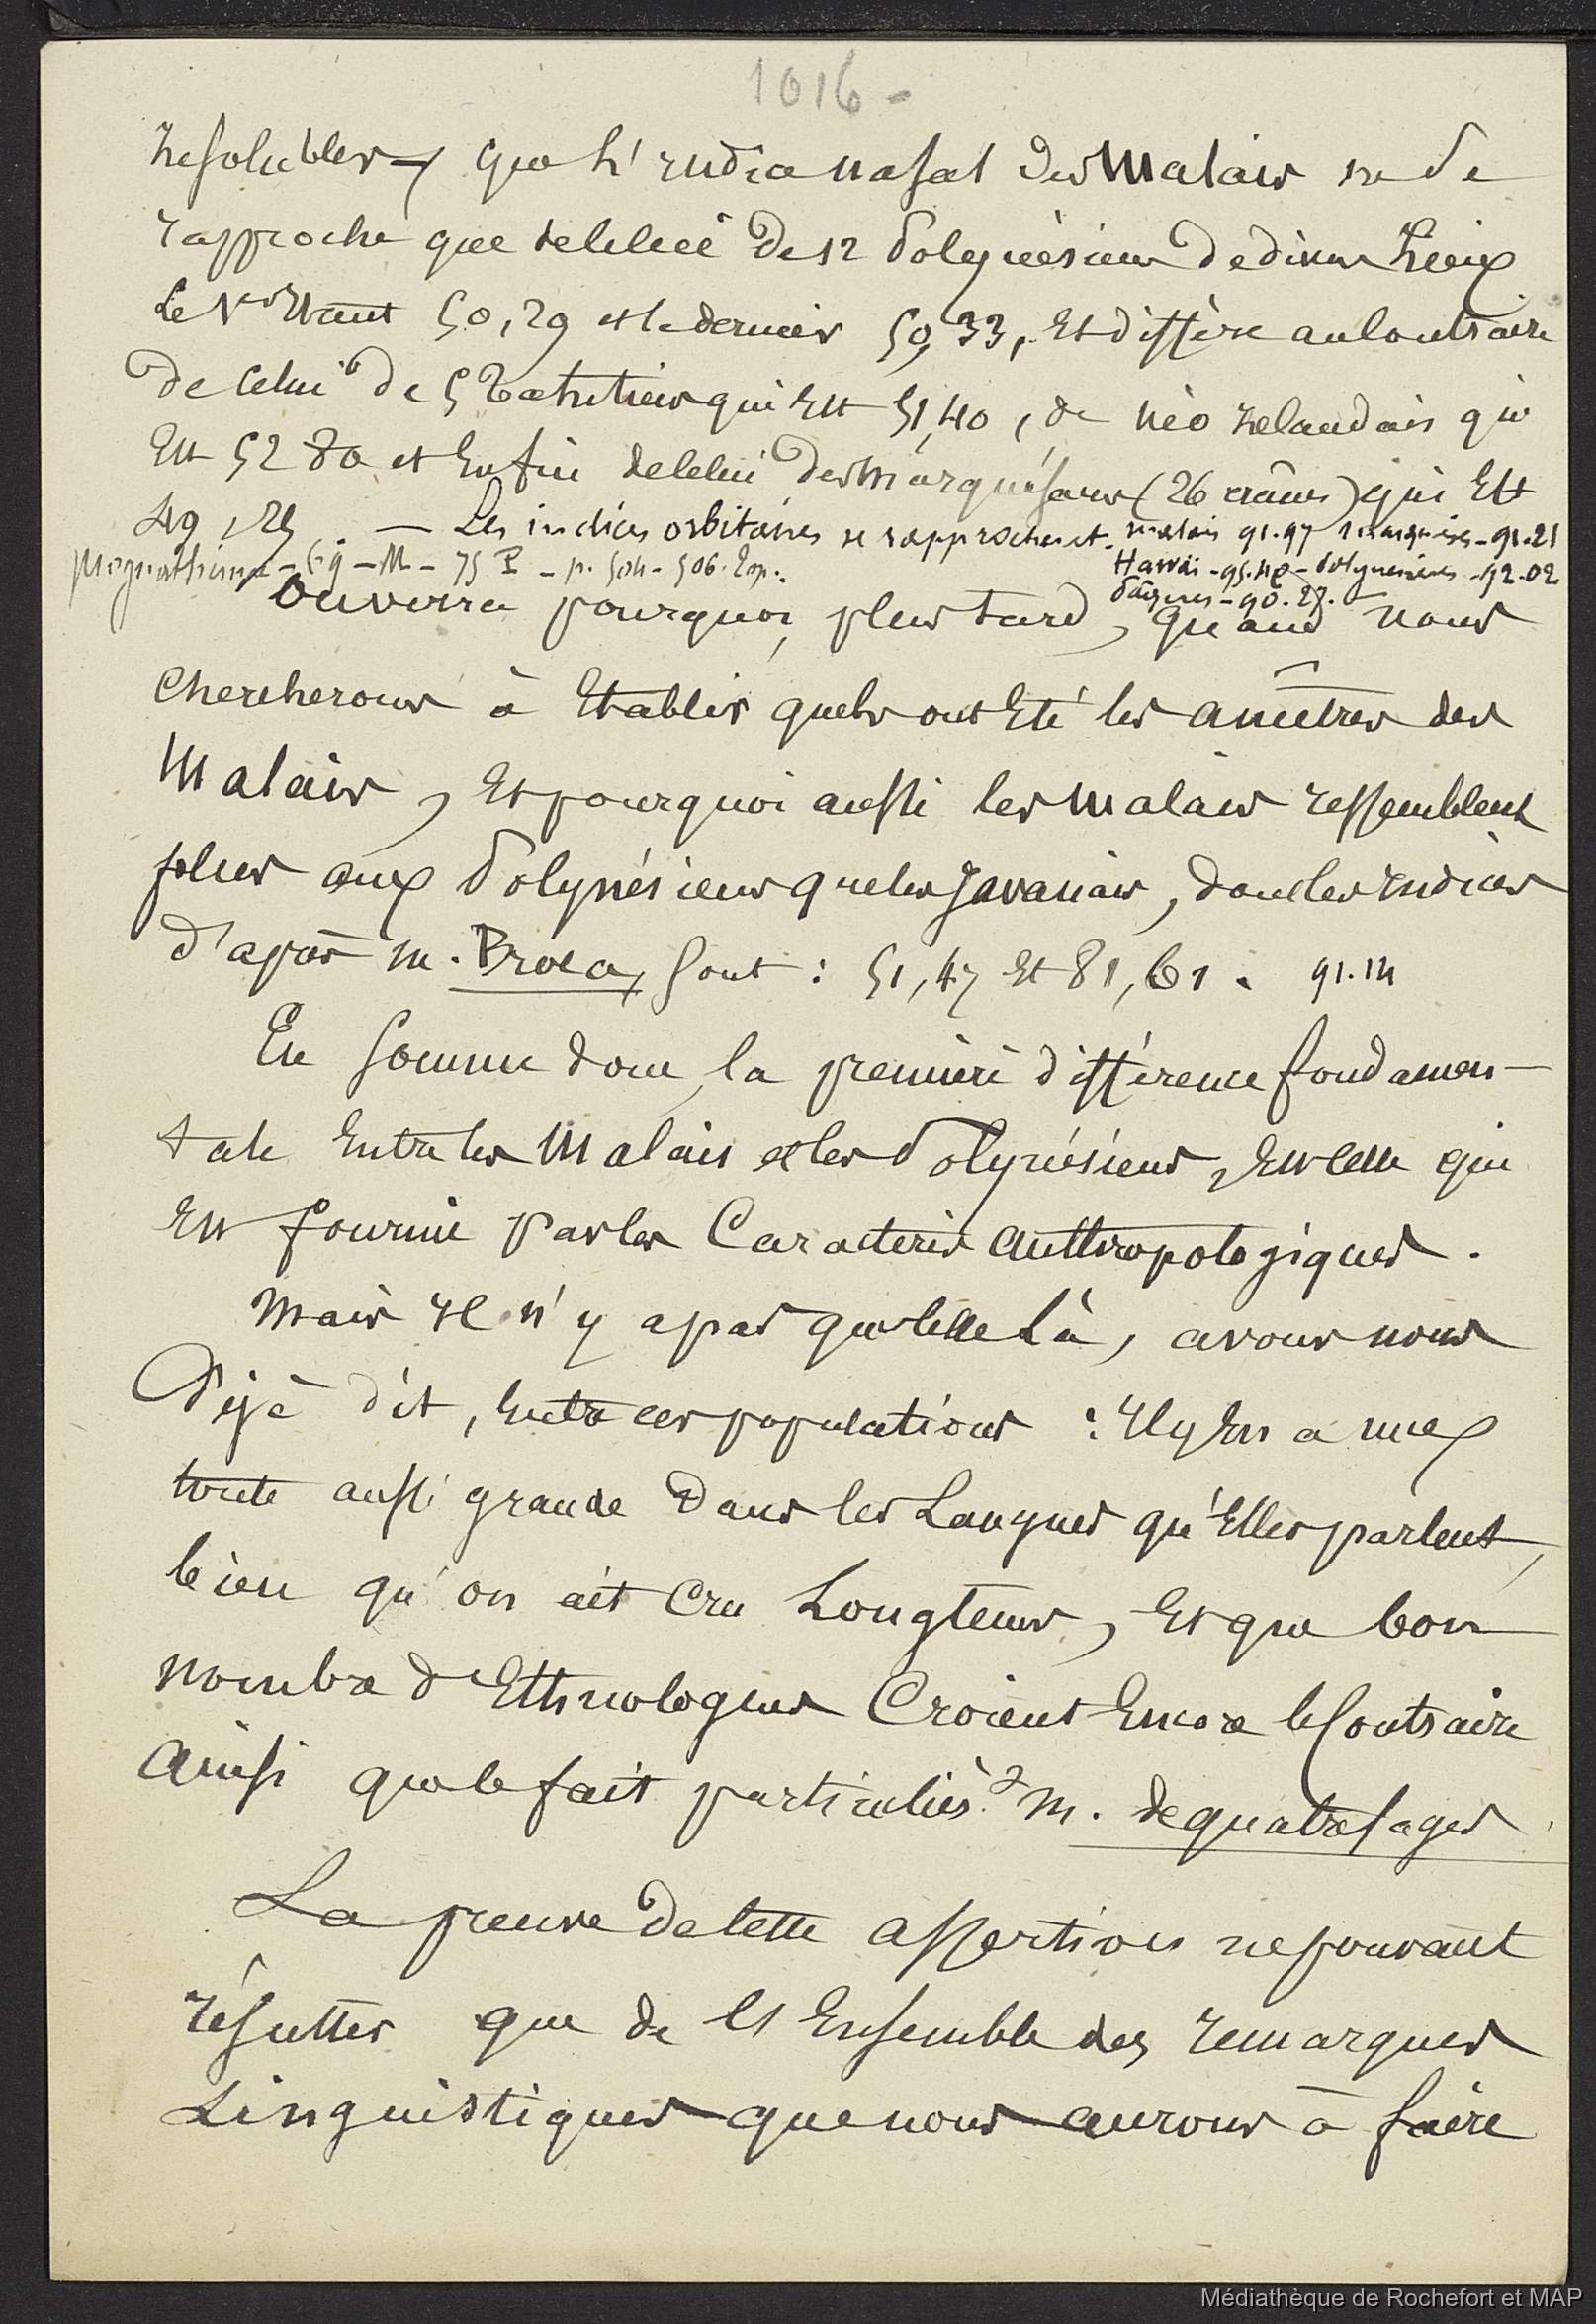 1016 -
que l'indice nasal des Malais ne se
rapproche que de celui de 12 Polynésiens de divers lieux
Le 1er étant 50,29 et le dernier 50,33, Et diffère au contraire
de celui de 5 Tahitiens qui Est 51,40, de néo zelandais qui
Est 52 80 et Enfin de celui des Marquésans (26 crânes) qui Est
49,25. — Les indices orbitaires se rapprochent. malais 91.97 marquises - 91.21
Prognathisme - 69 - M - 75 P - p. 504 - 506. Top.. Hawäi - 95.40 - Polynésiens - 92.02
Pâques - 90.27.
On verra pourquoi, plus tard, quand nous
Chercherons à Etablir quels ont Eté les ancêtres des
Malais, Et pourquoi aussi les Malais ressemblent
plus aux Polynésiens que les Javanais, dont les indices
d'après M. Broca, sont : 51,47 Et 81,61. 91.14
En somme donc, la première différence fondamen-
tale Entre les Malais et les Polynésiens, Est celle qui
Est fournie par les Caractères anthropologiques.
Mais Il n'y a pas que celle là, avons nous
Déjà dit, Entre ces populations : Il y En a une
toute aussi grande Dans les Langues qu'Elles parlent,
bien qu'on ait Cru Longtems, Et que bon
nombre d'Ethnologues Croient Encore le Contraire
Ainsi que le fait particulièrt M. de quatrefages
La preuve de cette assertion ne pouvant
résulter que de l'Ensemble des remarques
Linguistiques que nous aurons à faire
Médiathèque de Rochefort et MAP